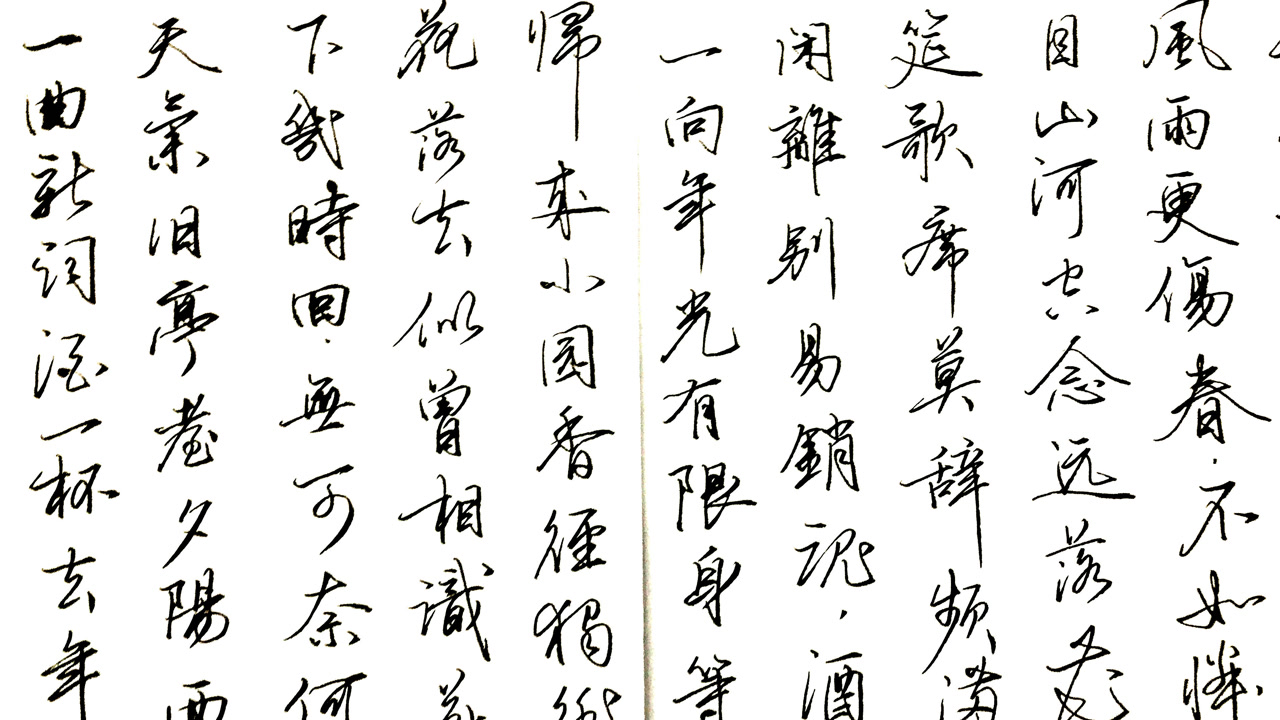 一曲新詞酒一杯去年
天氣旧亭臺夕陽西
下幾時回.無可奈何
花落去似曾相識燕
歸来小園香徑獨徘
一向年光有限身等
閑離别易銷魂.酒
筵歌席莫辞頻满
目山河空念远落花
風雨更傷春.不如憐